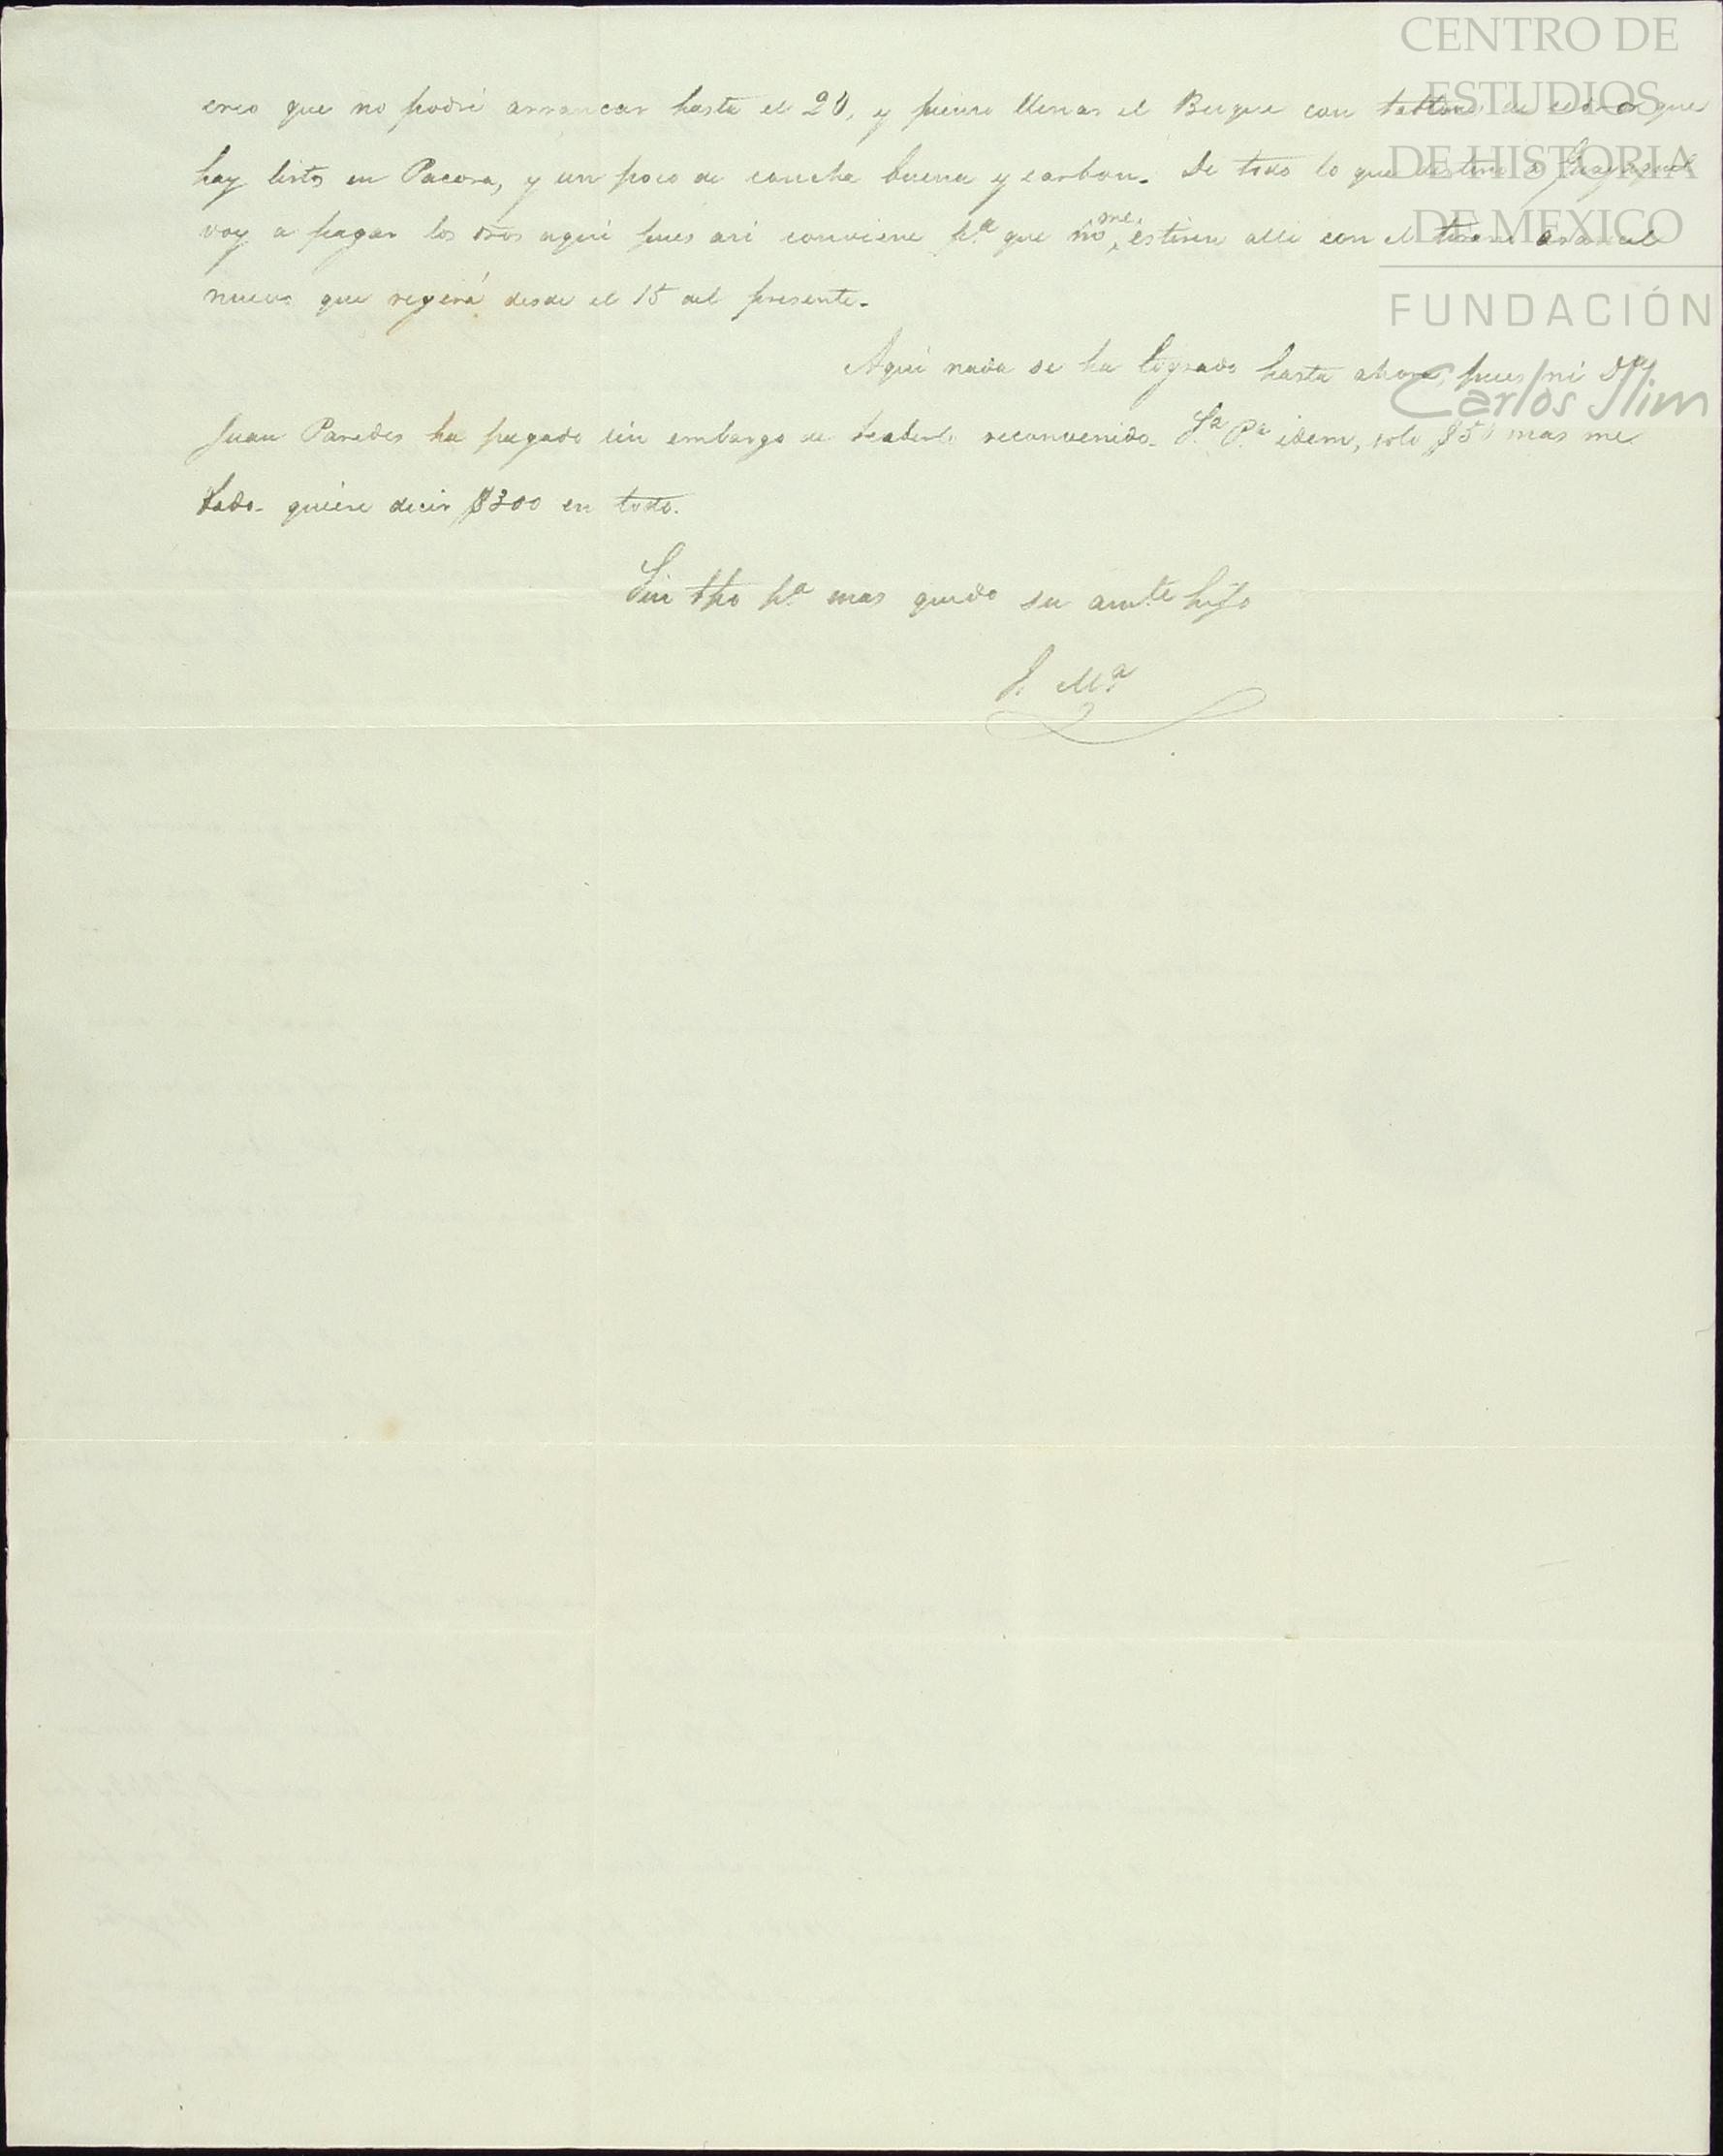 CENTRO DE
ESTUDIOS
DE HISTORIA
DE MEXICO
FUNDACIÓN
Carlos Slim
creo que no podré arrancar hasta el 20, y pienso llenar el Buque con tablones de cedro que
hay listos en Pacora, y un poco de concha buena y carbon. De todo lo que destino a Guayaquil
voy a pagar los dros aqui pues asi conviene pa. que no me estiren alli con el arancel
nuevo que regerá desde el 15 del presente.
Aqui nada se ha logrado hasta ahora, pues ni Dn.
Juan Paredes ha pagado sin embargo de haberlo reconvenido. idem, solo $50 mas me
dado. quiere decir $300 en todo.
Sin tpo pa. mas quedo su amte hijo
J. Ma.